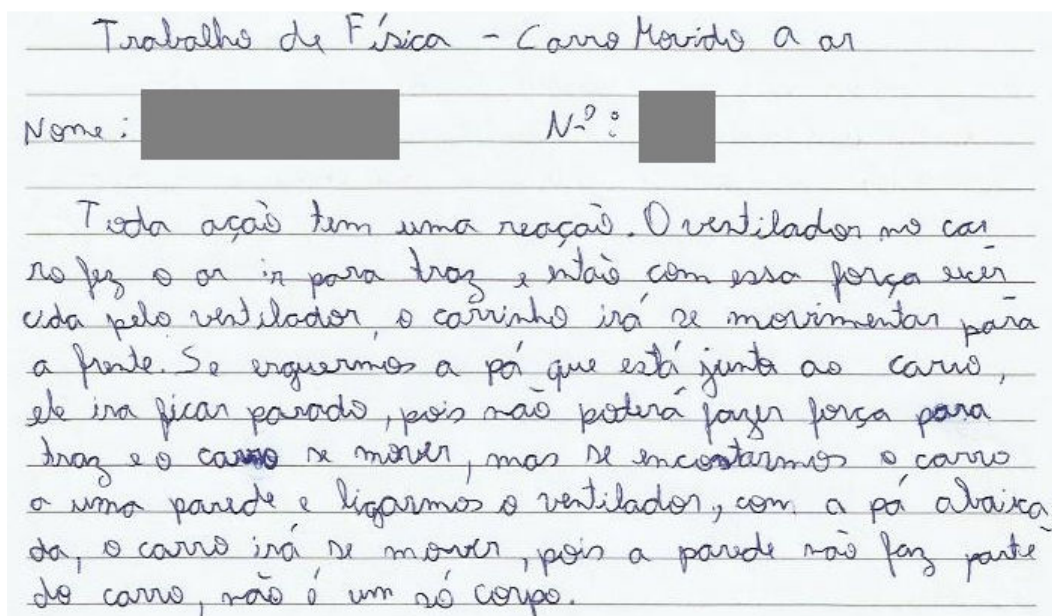 Trabalho de Física - Carro Movido a ar
Nome: Nº:
Toda ação tem uma reação. O ventilador no car
ro fez o ar ir para traz e então com essa força exer
cida pelo ventilador, o carrinho irá se movimentar para
a frente. Se erguermos a pá que está junto ao carro,
ele ira ficar parado, pois não poderá fazer força para
traz e o carro se mover, mas se encostarmos o carro
a uma parede e ligarmos o ventilador, com a pá abaixa
da, o carro irá se mover, pois a parede não faz parte
do carro, não é um só corpo.